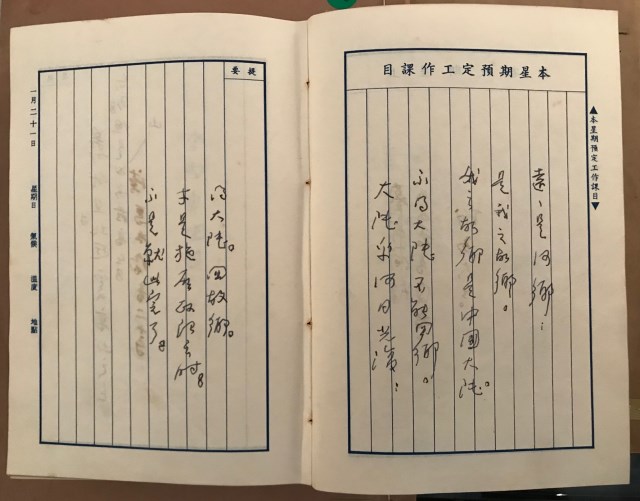 本星期預定工作課目
▲本星期預定工作課目▼
遠〻是何鄉：
是我之故鄉。
我之故鄉是中國大陸。
不得大陸。不能回鄉。
大陸乎何日光復：
提要
得大陸。回故鄉。
才是施展政
不是就此完了。
一月二十一日 星期日 氣候 溫度 地點